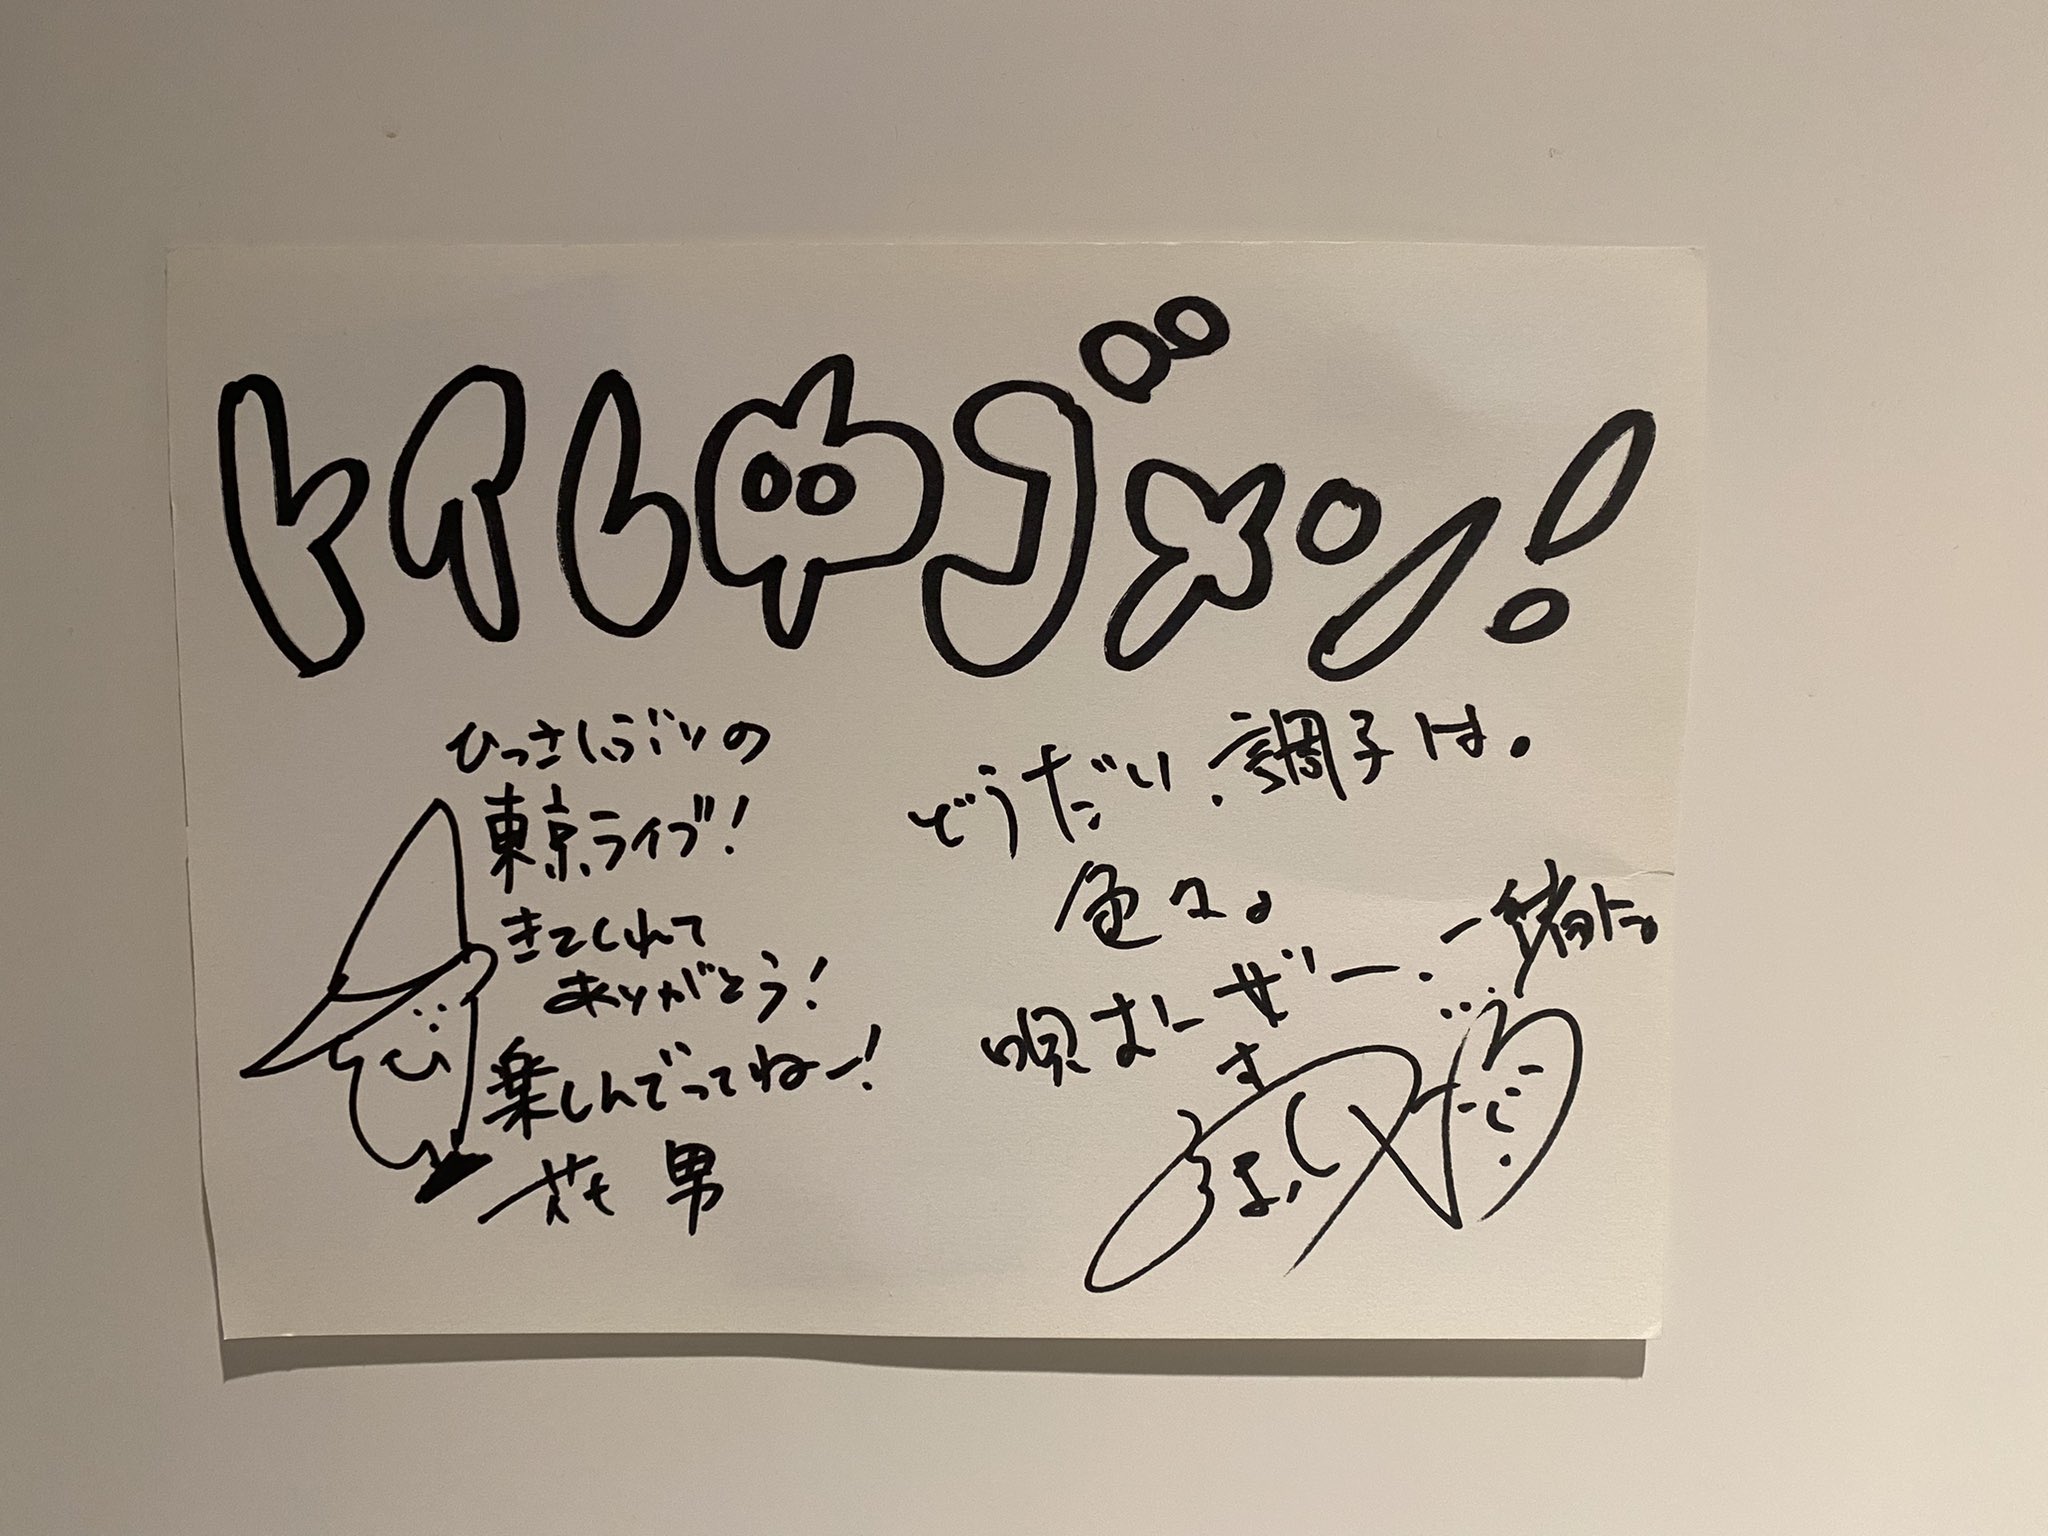 トイしゅジョン!
ひっさしぶりの
東京ライブ!
きてくれて
ありがとう!
楽しんでってねー!
花男
どうだい、調子は。
色々。
唄おーぜー、一緒に。